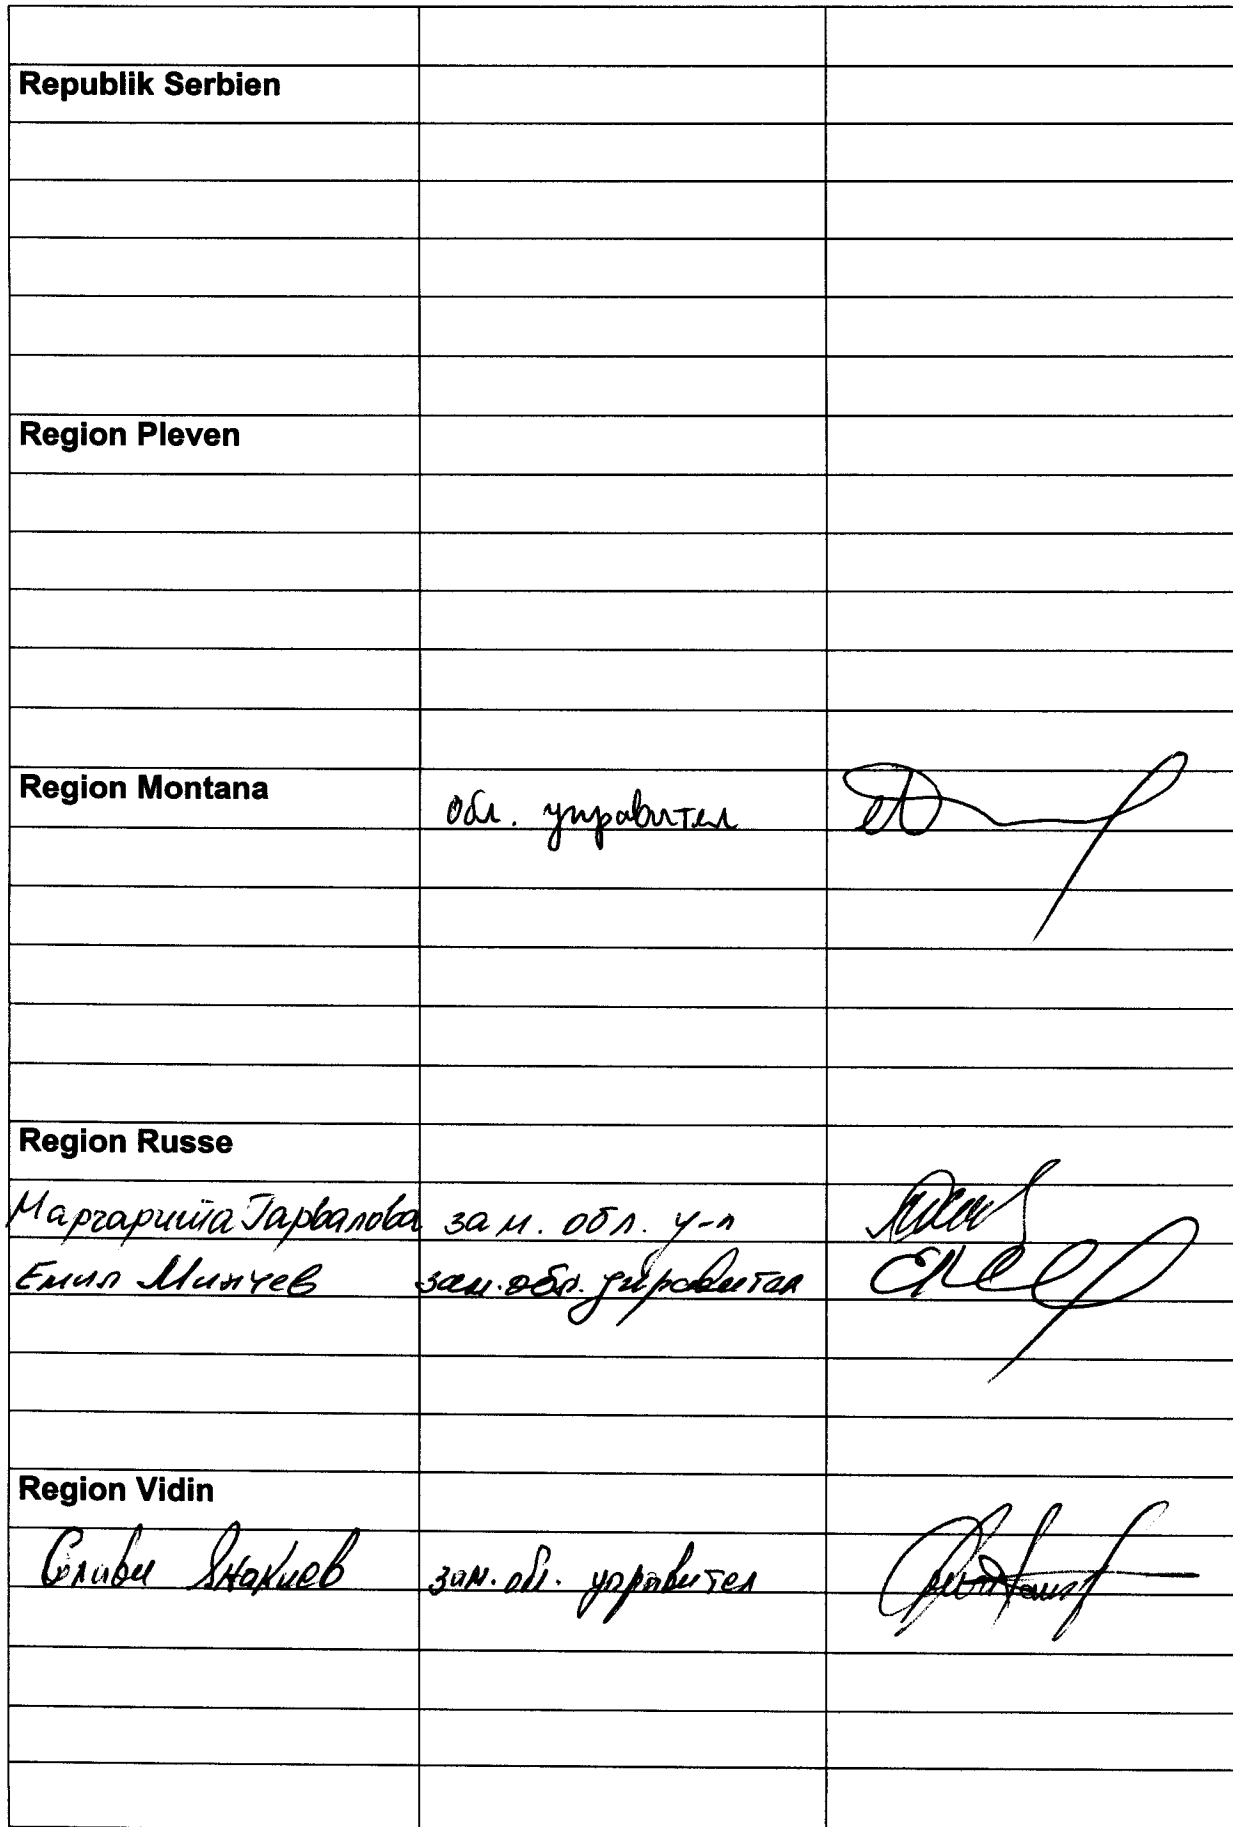 Republik Serbien
Region Pleven
Region Montana обл. управител
Region Russe
Маргарита Гарвалова зам. обл. у-л
Емил Минчев зам. обл. управител
Region Vidin
Янакиев зам. обл. управител